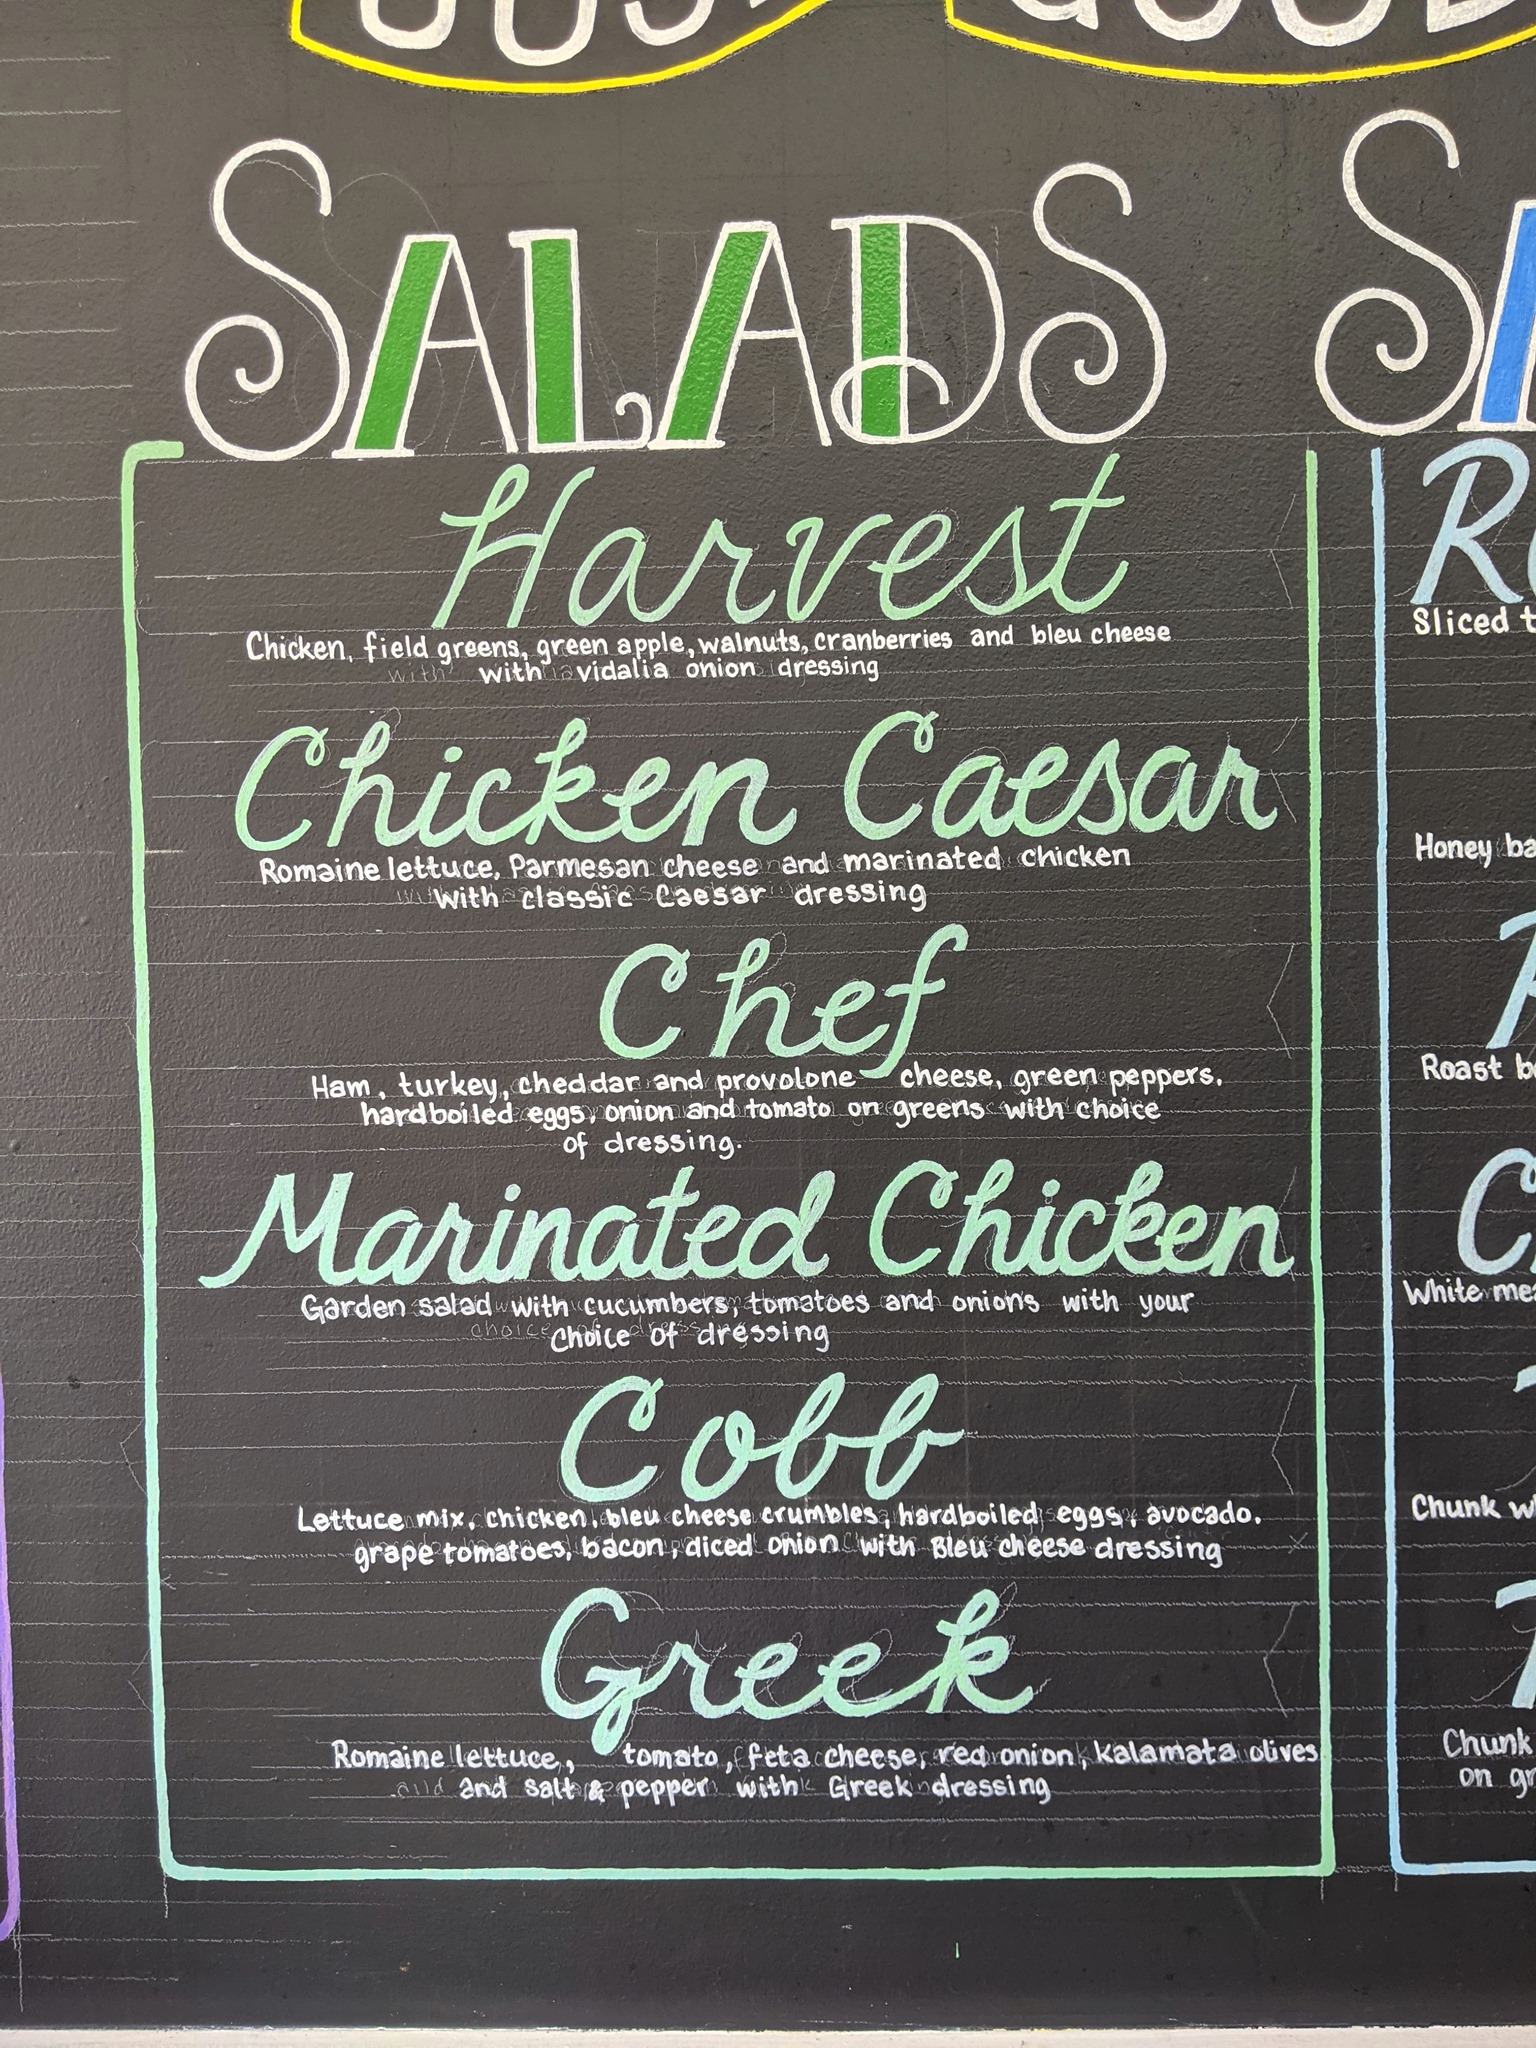 SALADS
Harvest
Chicken, field greens, green apple, walnuts, cranberries and bleu cheese
with vidalia onion dressing
Chicken Caesar
Romaine lettuce, Parmesan cheese and marinated chicken
with classic Caesar dressing
Chef
Ham, turkey, cheddar and provolone cheese, green peppers,
hardboiled eggs, onion and tomato on greens with choice
of dressing.
Marinated Chicken
Garden salad with cucumbers, tomatoes and onions with your
choice of dressing
Cobb
Lettuce mix, chicken, bleu cheese crumbles, hardboiled eggs, avocado,
grape tomatoes, bacon, diced onion with Bleu cheese dressing
Greek
Romaine lettuce, tomato, feta cheese, red onion, kalamata olives
and salt & pepper with Greek dressing
Sliced
Honey
Roast
White
Chunk
Chunk
on